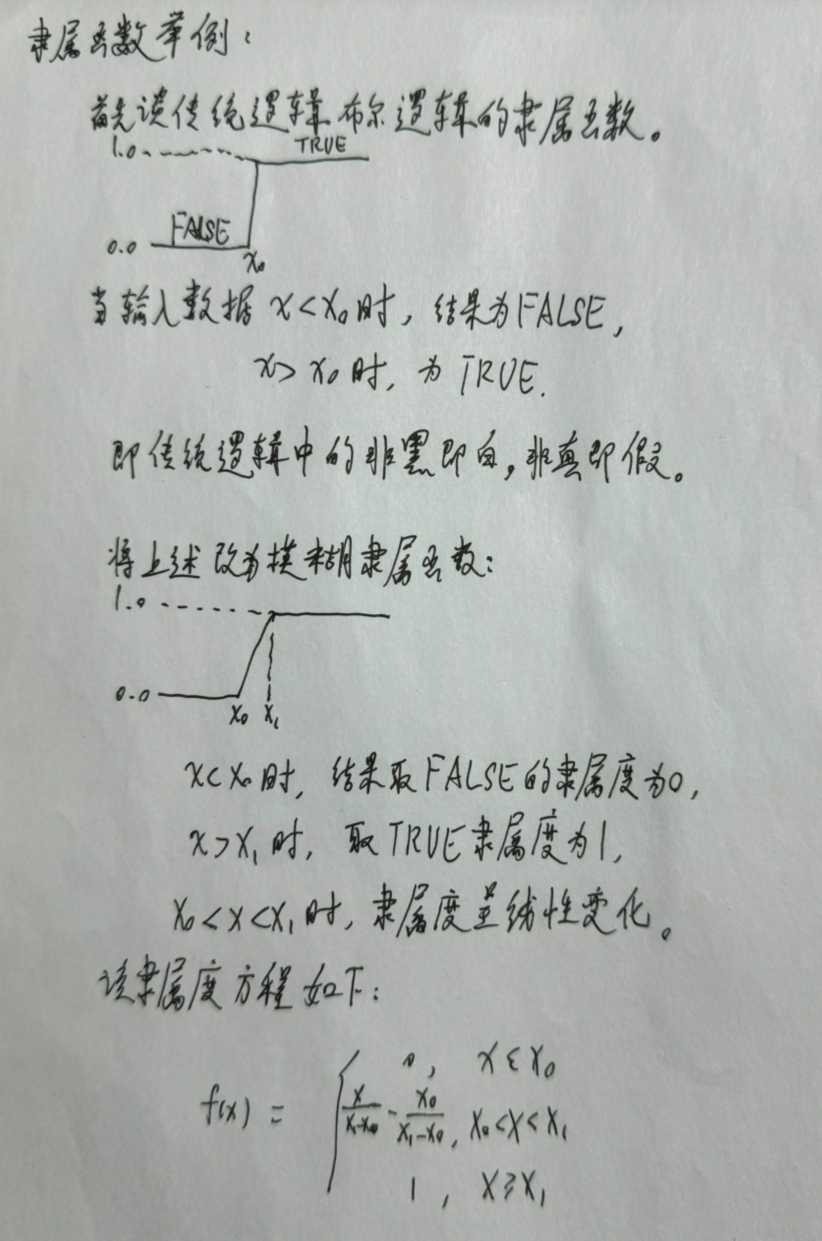 隶属函数举例：
首先读传统逻辑布尔逻辑的隶属函数。
1.0
TRUE
FALSE
0.0
x₀
当输入数据 x<x₀时，结果为FALSE，
x>x₀时，为TRUE.
即传统逻辑中的非黑即白，非真即假。
将上述改为模糊隶属函数：
1.0
0.0
x₀ x₁
x<x₀时，结果取FALSE的隶属度为0，
x>x₁时，取TRUE隶属度为1，
x₀<x<x₁时，隶属度呈线性变化。
该隶属度方程如下：
0, x≤x₀
f(x) = { x/(x₁-x₀) - x₀/(x₁-x₀), x₀<x<x₁
1, x≥x₁